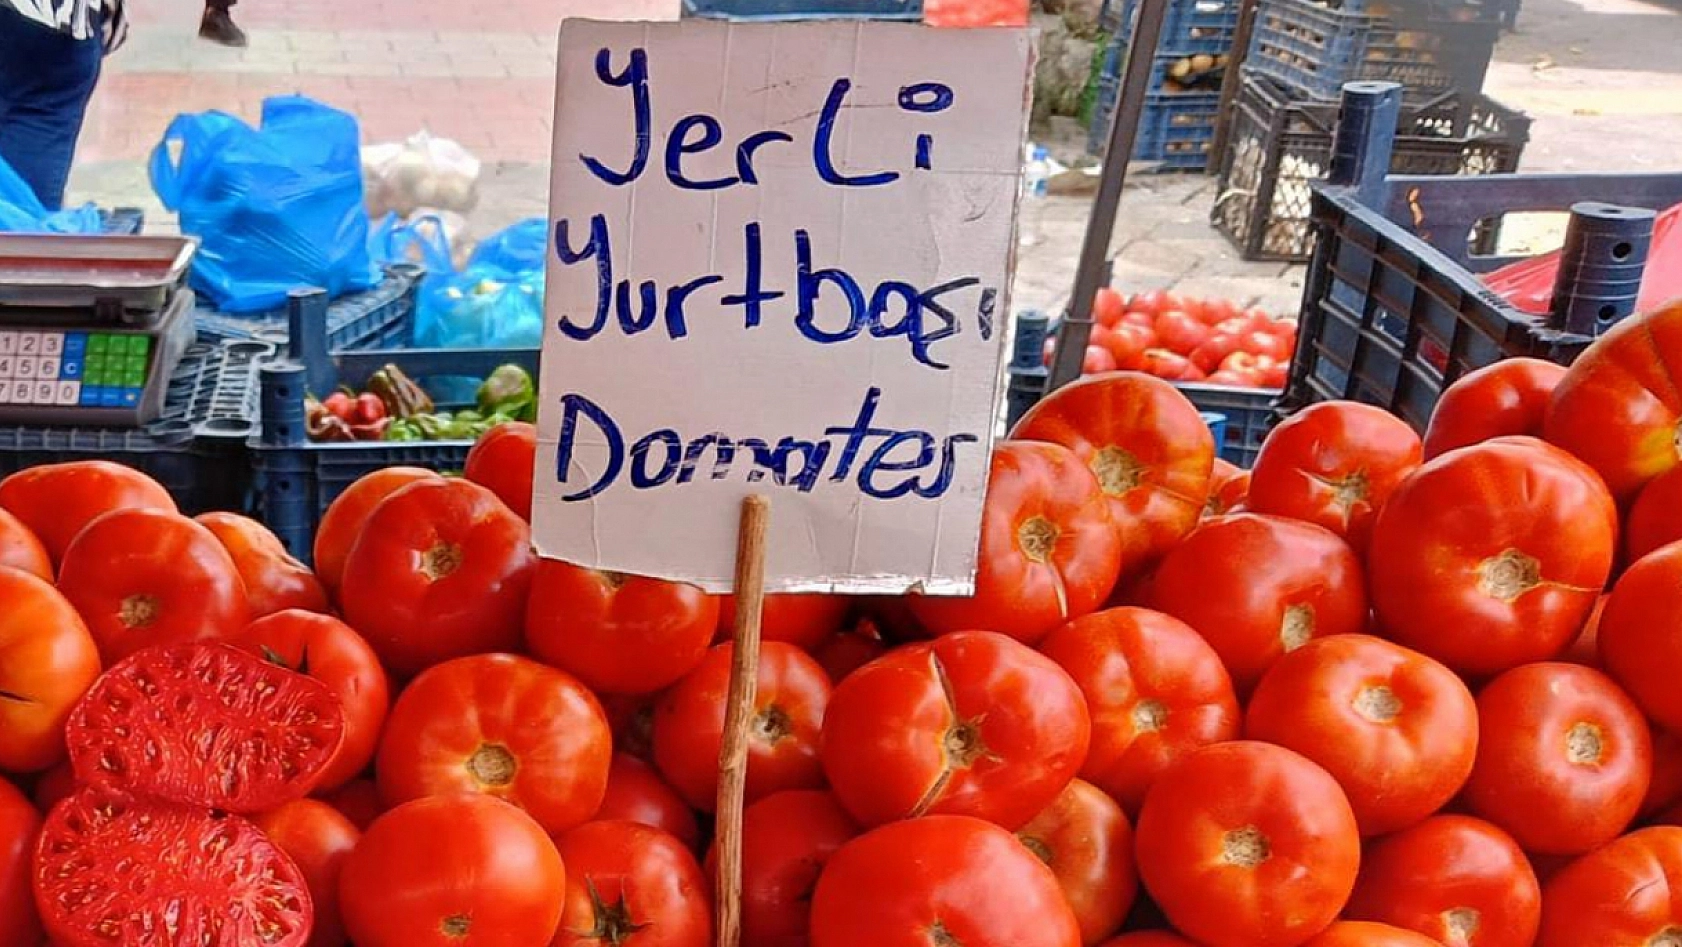 Yerli
Yurtbaşı
Domates
1 2 3
4 5 6 C
7 8 9 0